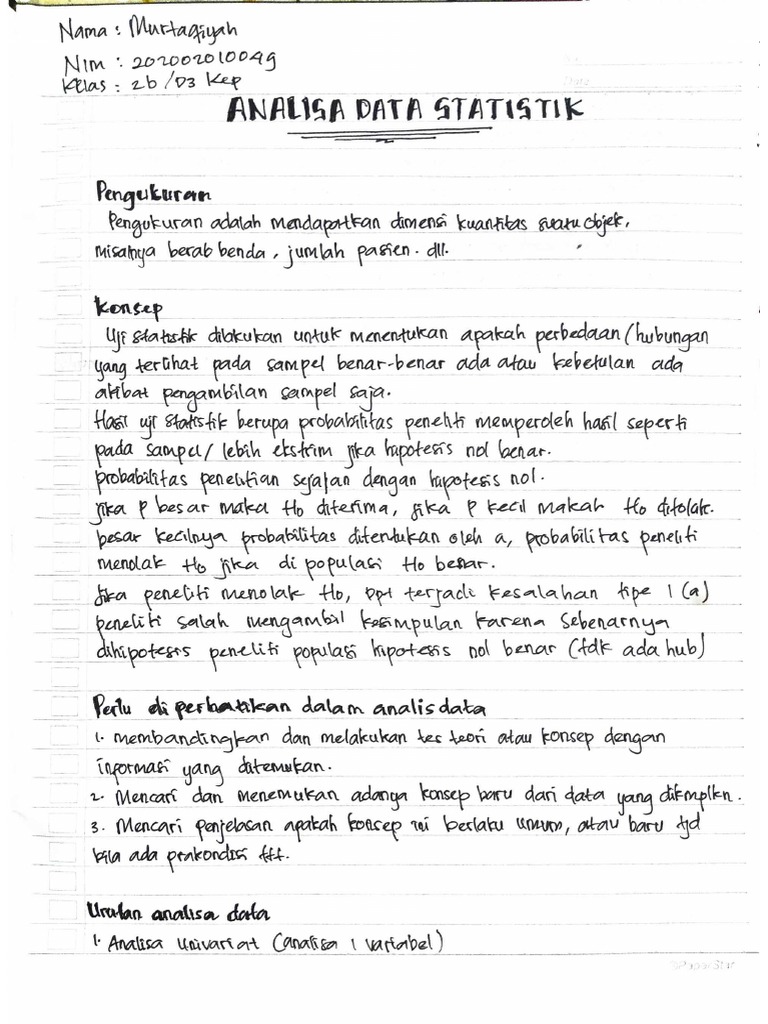 Nama : Murtaqiyah
Nim : 202002010049
Kelas : 2b/D3 Kep
ANALISA DATA STATISTIK
Pengukuran
Pengukuran adalah mendapatkan dimensi kuantitas suatu objek,
misalnya berab benda, jumlah pasien. dll.
Konsep
Uji statistik dilakukan untuk menentukan apakah perbedaan/hubungan
yang terlihat pada sampel benar-benar ada atau kebetulan ada
akibat pengambilan sampel saja.
Hasil uji statistik berupa probabilitas peneliti memperoleh hasil seperti
pada sampel/ lebih ekstrim jika hipotesis nol benar.
probabilitas penelitian sejalan dengan hipotesis nol.
jika p besar maka Ho diterima, jika p kecil makah Ho ditolak.
besar kecilnya probabilitas ditentukan oleh a, probabilitas peneliti
menolak Ho jika di populasi Ho benar.
Jika peneliti menolak Ho, Dpt terjadi kesalahan tipe 1 (a)
peneliti salah mengambil kesimpulan karena sebenarnya
dihipotesis peneliti populasi hipotesis nol benar (tdk ada hub)
Perlu di perhatikan dalam analis data
1. membandingkan dan melakukan tes teori atau konsep dengan
informasi yang ditemukan.
2. Mencari dan menemukan adanya konsep baru dari data yang dikmplkn.
3. Mencari penjelasan apakah konsep ini berlaku umum, atau baru tjd
bila ada prakondisi ttt.
Urutan analisa data
1. Analisa Univariat (analisa 1 variabel)